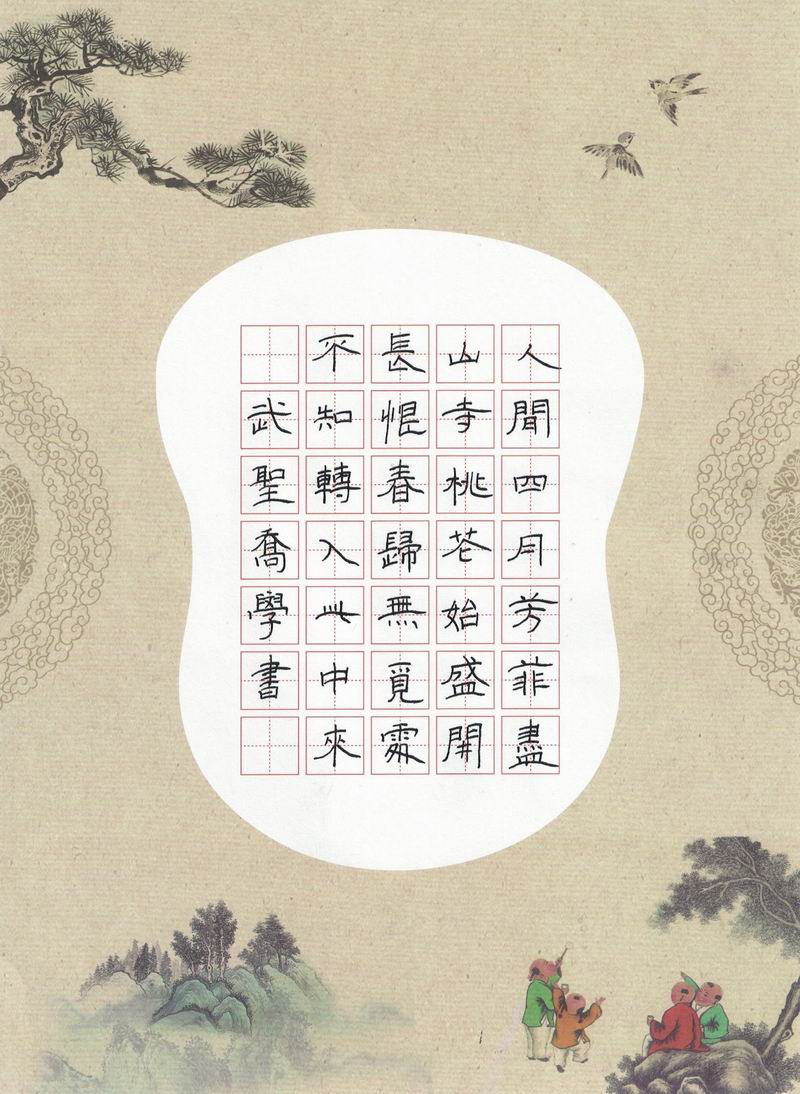 人間四月芳菲盡
山寺桃芲始盛開
長恨春歸無覓處
不知轉入此中來
武聖喬學書